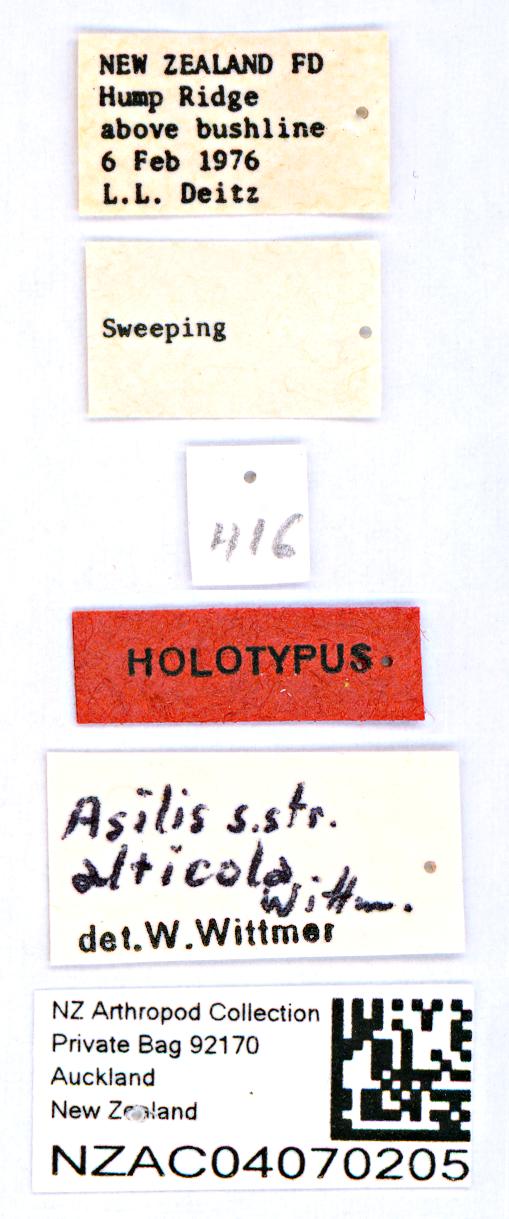 NEW ZEALAND FD
Hump Ridge
above bushline
6 Feb 1976
L.L. Deitz
Sweeping
416
HOLOTYPUS
Asilis s.str.
alticola
Wittm.
det.W.Wittmer
NZ Arthropod Collection
Private Bag 92170
Auckland
New Zealand
NZAC04070205